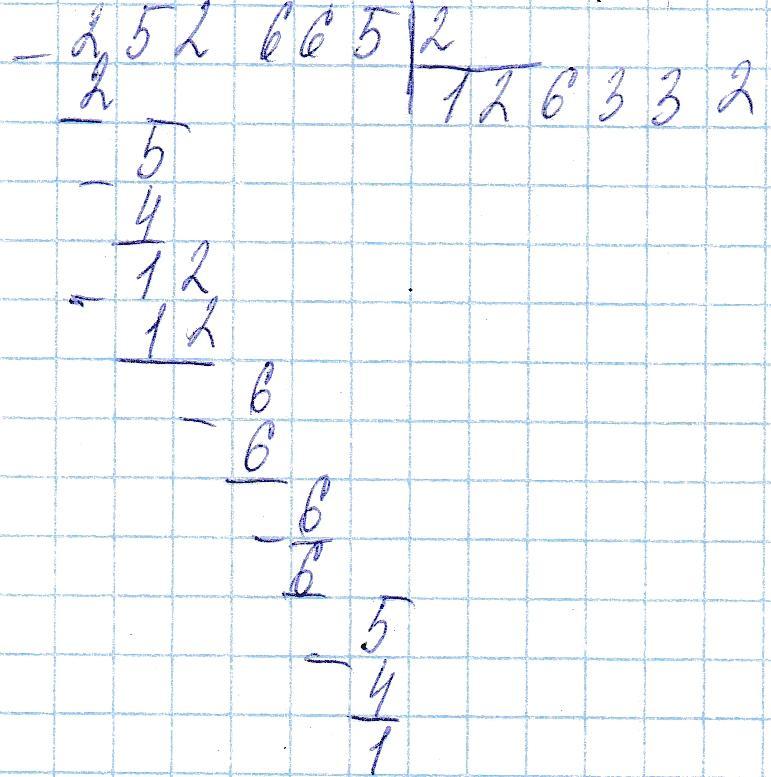 - 252 665 | 2
2 126332
- 5
4
- 12
12
- 6
6
- 6
6
- 5
4
1